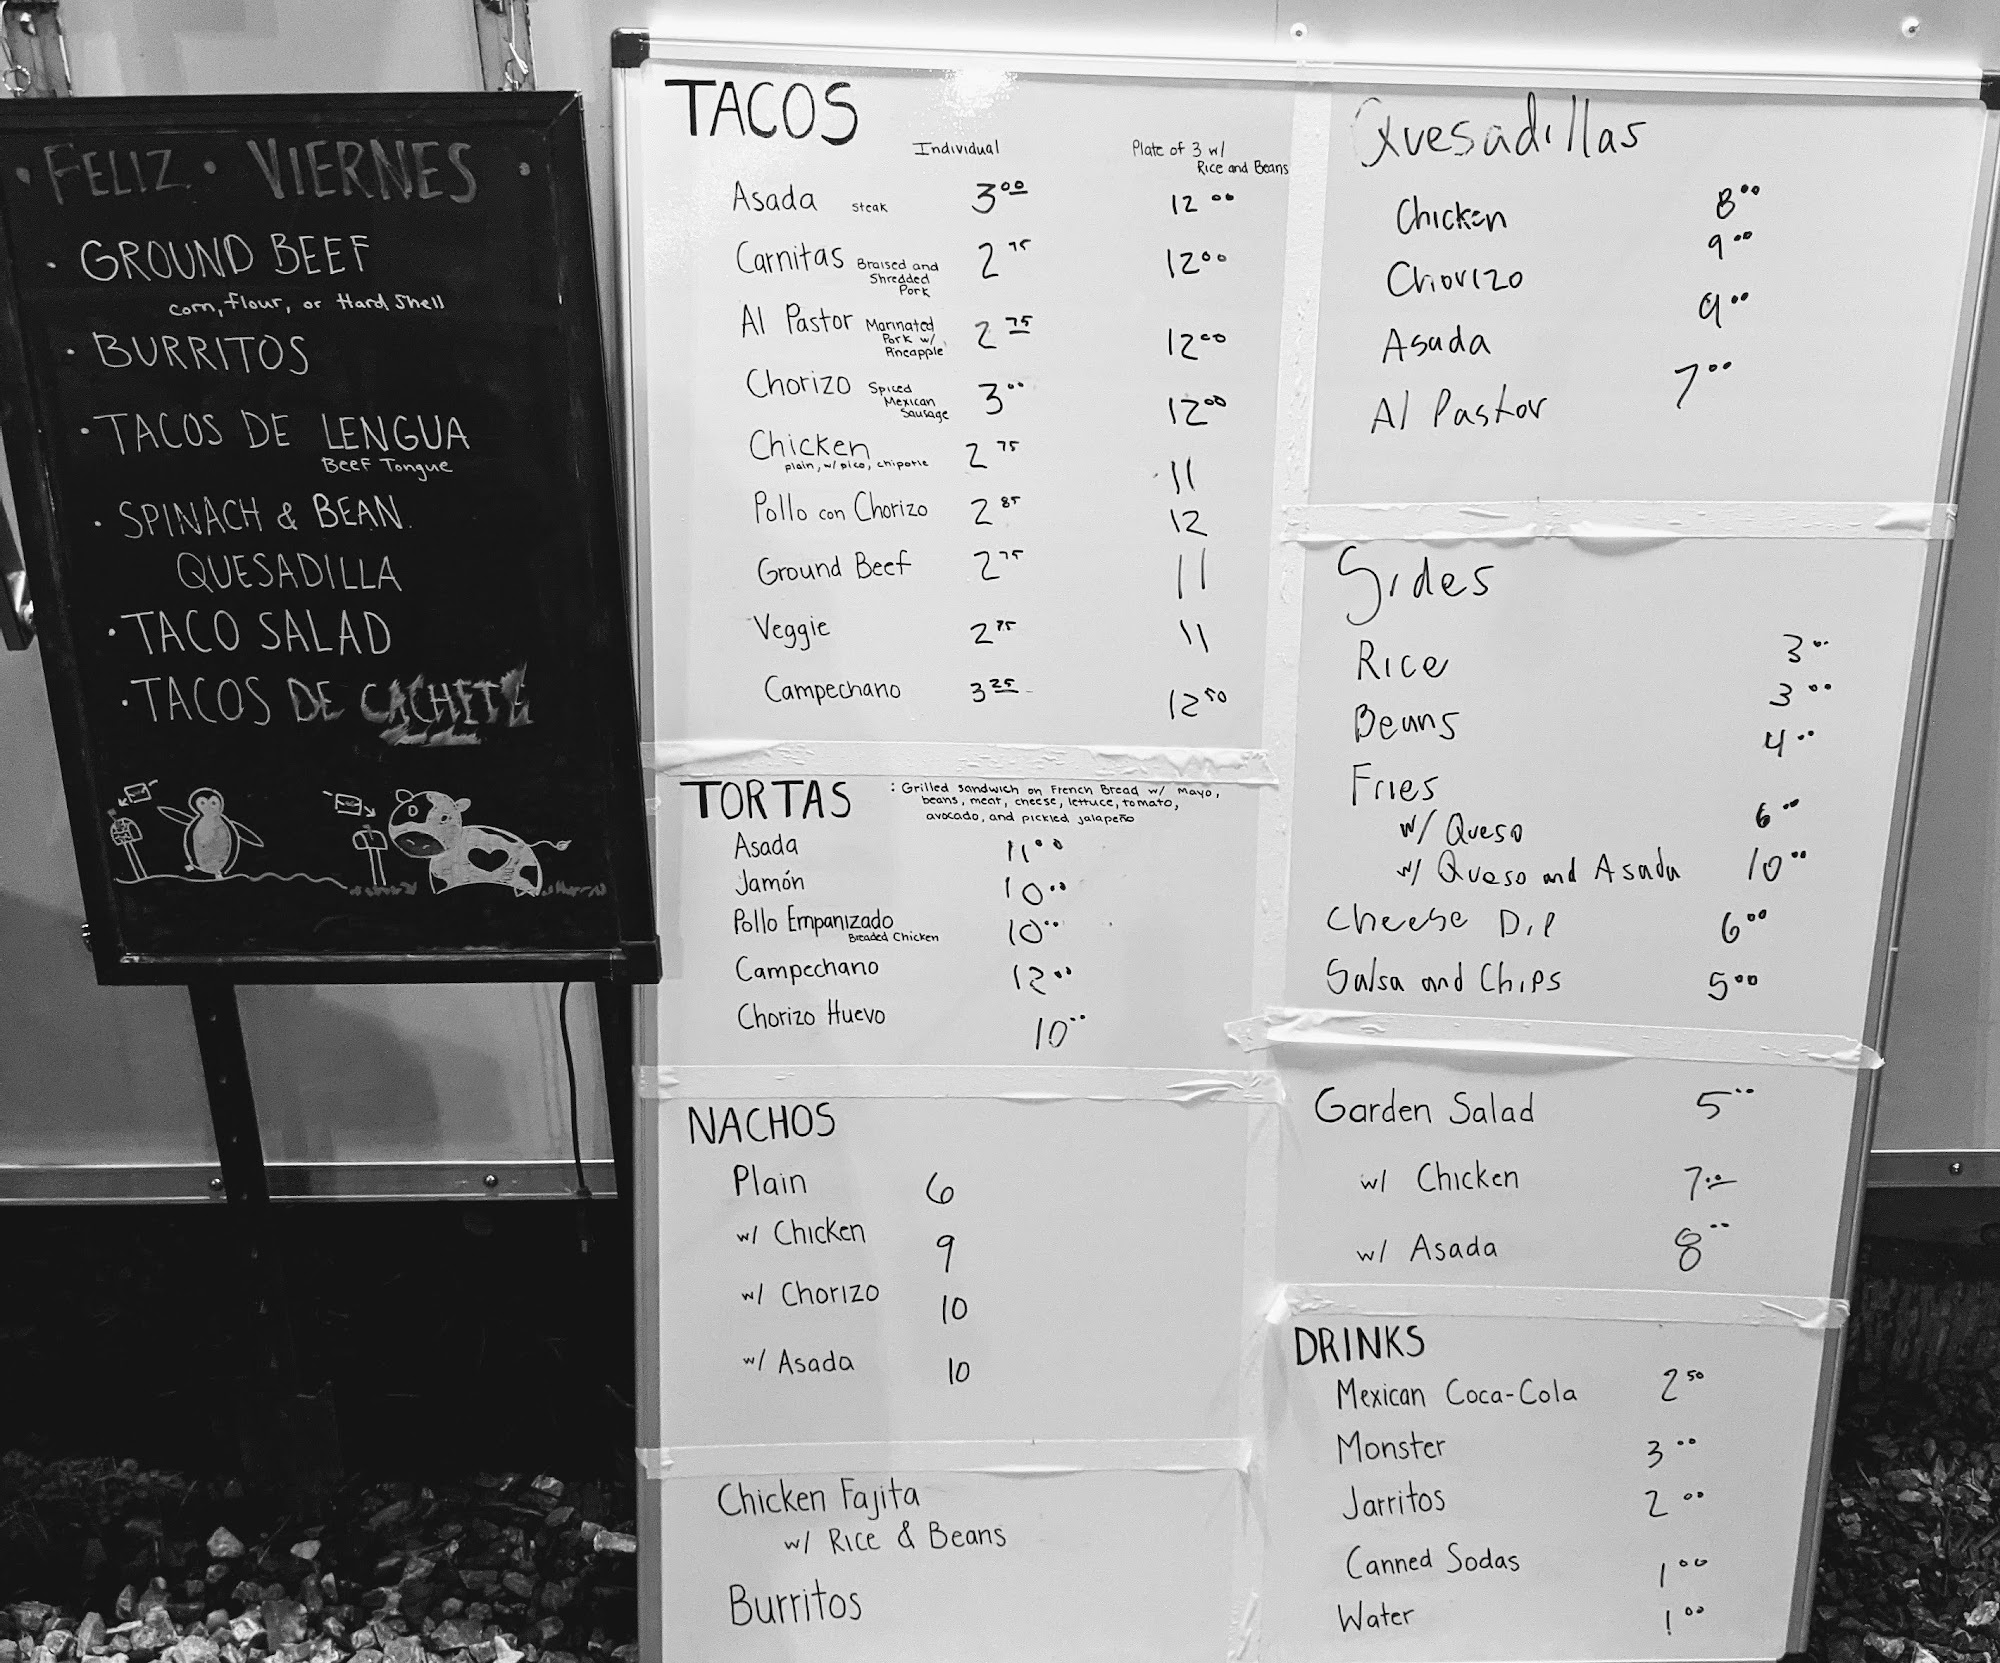 • FELIZ • VIERNES •
• GROUND BEEF
corn, flour, or Hard Shell
• BURRITOS
• TACOS DE LENGUA
Beef Tongue
• SPINACH & BEAN
QUESADILLA
• TACO SALAD
• TACOS DE CACHETE
TACOS
Individual
Plate of 3 w/
Rice and Beans
Asada steak 3 00 12 00
Carnitas Braised and 2 75 12 00
Shredded
Pork
Al Pastor Marinated 2 75 12 00
Pork w/
Pineapple
Chorizo Spiced 3 00 12 00
Mexican
Sausage
Chicken 2 75 11
plain, w/ pico, chipotle
Pollo con Chorizo 2 85 12
Ground Beef 2 75 11
Veggie 2 75 11
Campechano 3 25 12 50
TORTAS : Grilled sandwich on French Bread w/ mayo,
beans, meat, cheese, lettuce, tomato,
avocado, and pickled jalapeño
Asada 11 00
Jamón 10 00
Pollo Empanizado 10 00
Breaded Chicken
Campechano 12 00
Chorizo Huevo 10 00
NACHOS
Plain 6
w/ Chicken 9
w/ Chorizo 10
w/ Asada 10
Chicken Fajita
w/ Rice & Beans
Burritos
Quesadillas
Chicken 8 00
Chorizo 9 00
Asada 9 00
Al Pastor 7 00
Sides
Rice 3 00
Beans 3 00
Fries 4 00
w/ Queso 6 00
w/ Queso and Asada 10 00
Cheese Dip 6 00
Salsa and Chips 5 00
Garden Salad 5 00
w/ Chicken 7 00
w/ Asada 8 00
DRINKS
Mexican Coca-Cola 2 50
Monster 3 00
Jarritos 2 00
Canned Sodas 1 00
Water 1 00